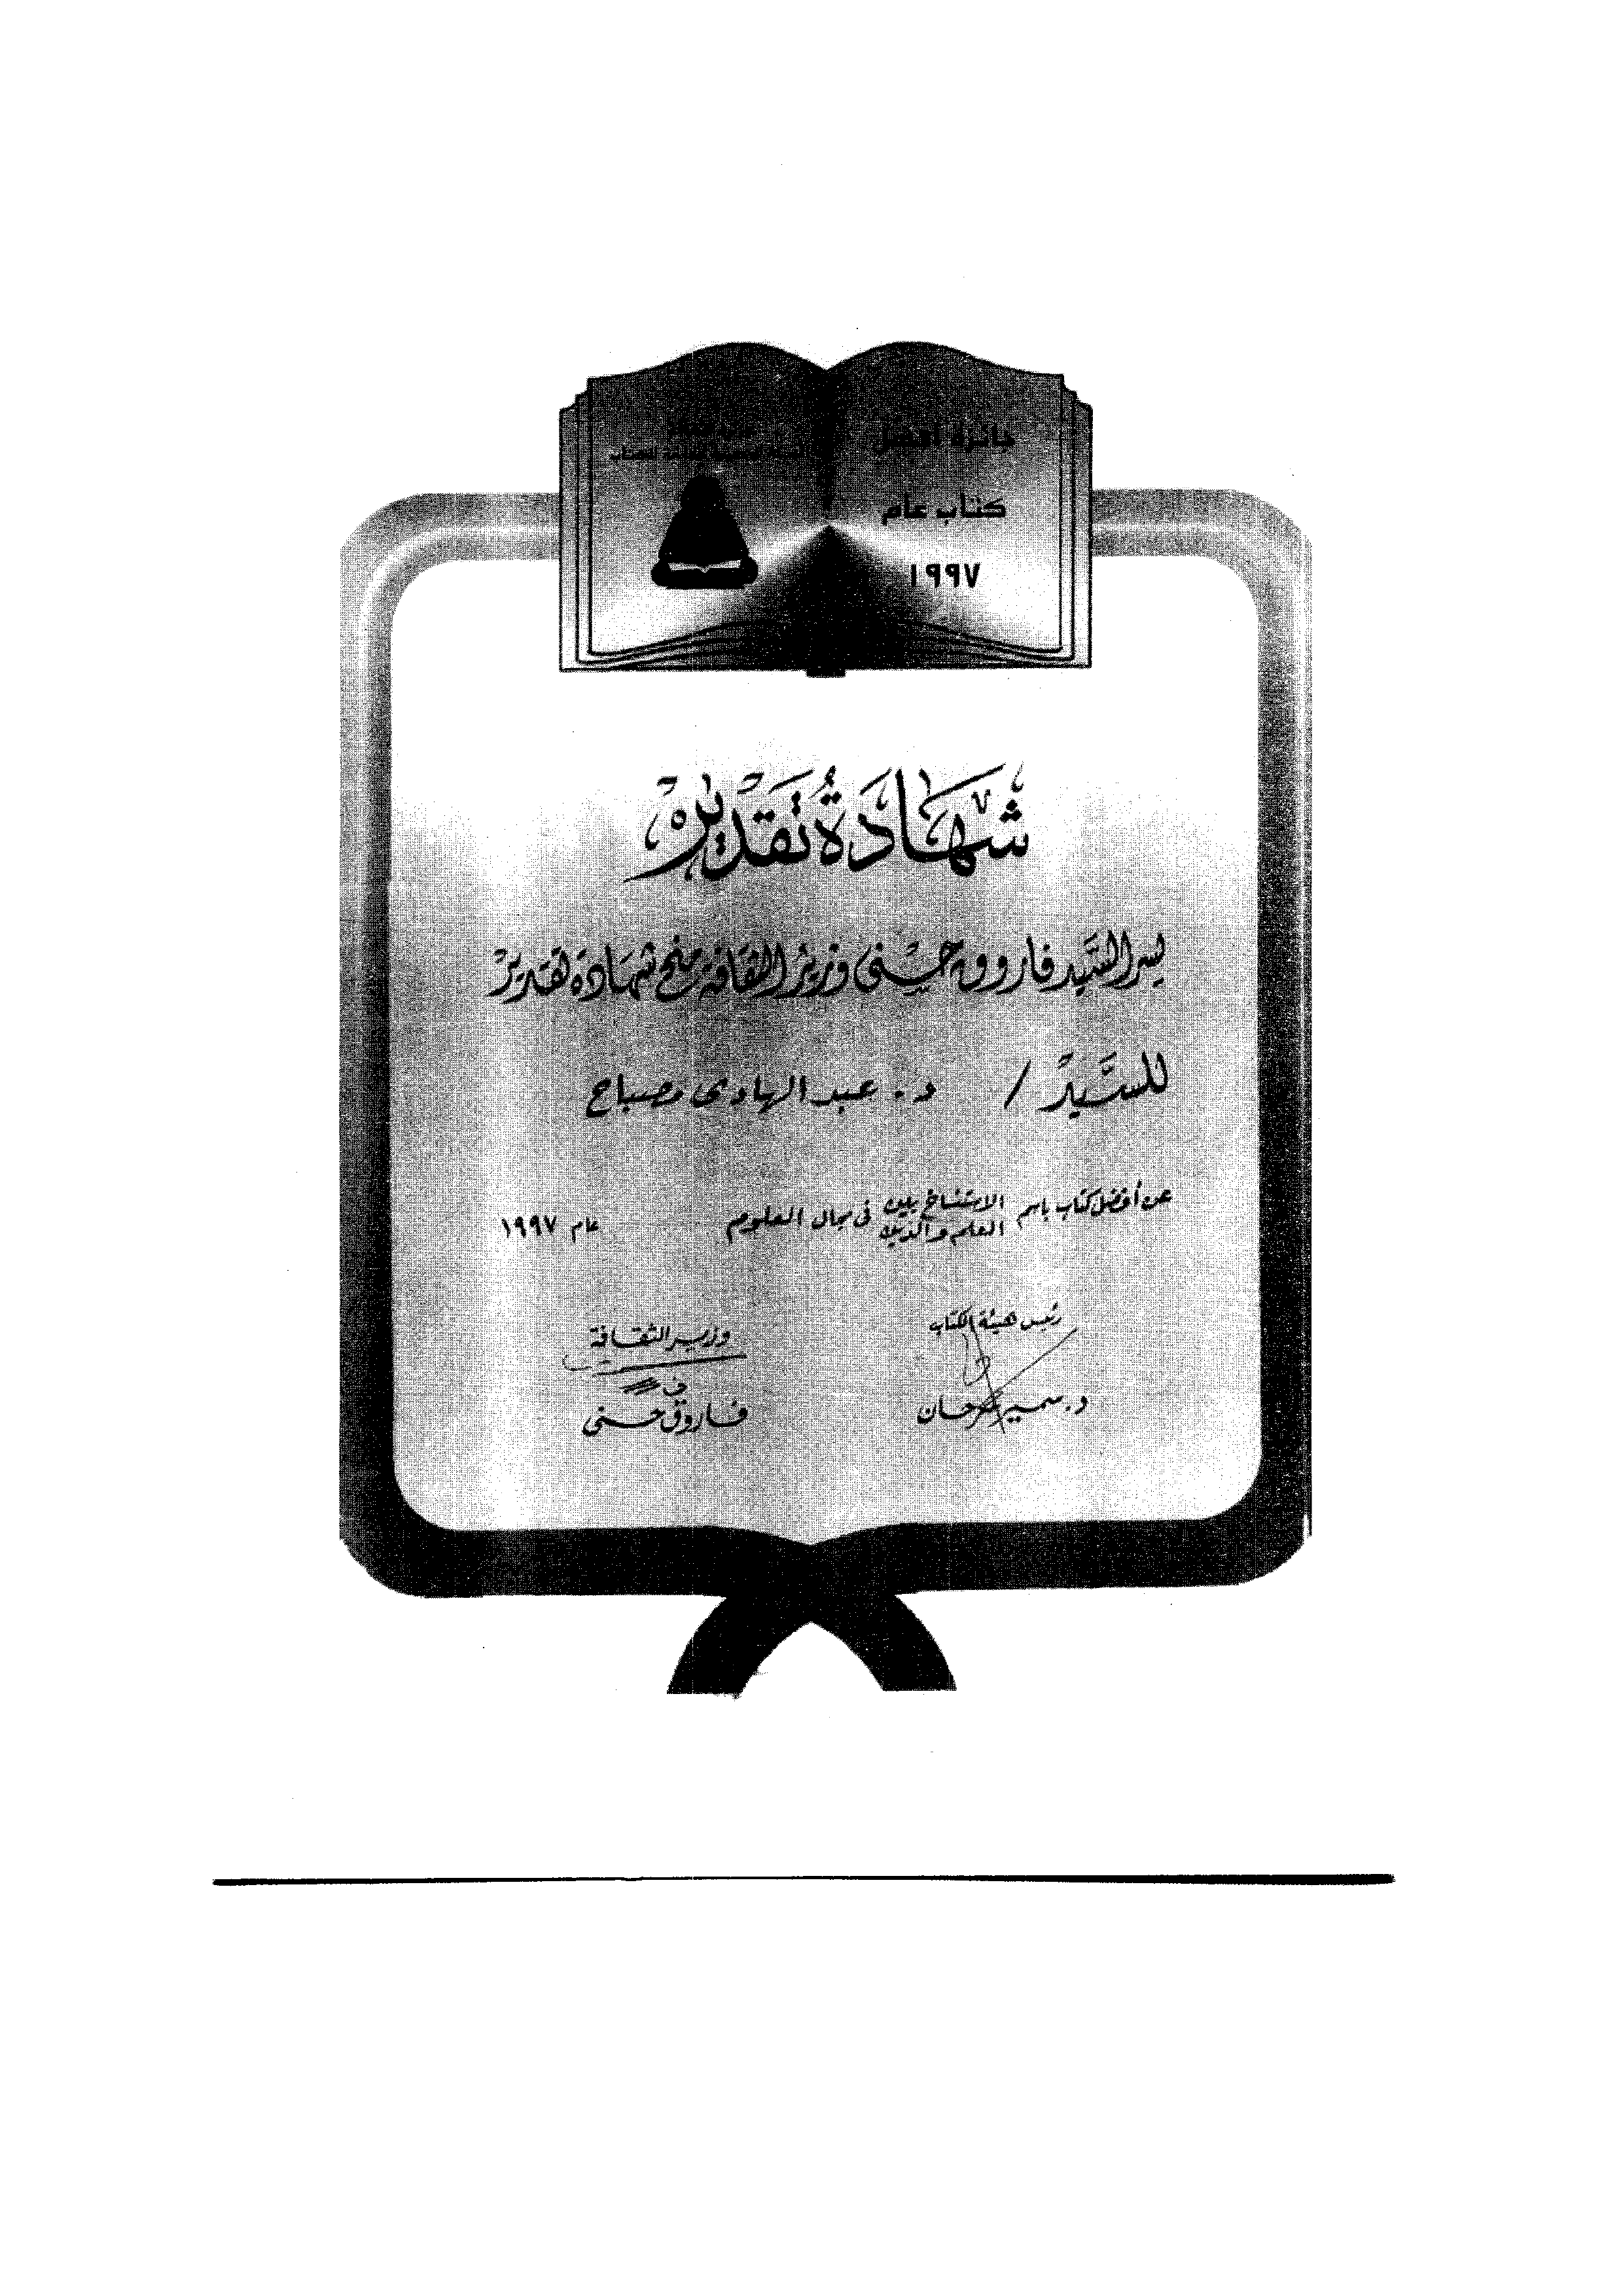 جائزة أفضل
كتاب عام
١٩٩٧
شهادة تقدير
يسر السيد فاروق حسنى وزير الثقافة منح شهادة تقدير
للسيد / د. عبد الهادى مصباح
عن أفضل كتاب باسم الاستنساخ بين العلم والدين فى مجال العلوم عام ١٩٩٧
رئيس هيئة الكتاب
د. سمير سرحان
وزير الثقافة
فاروق حسنى